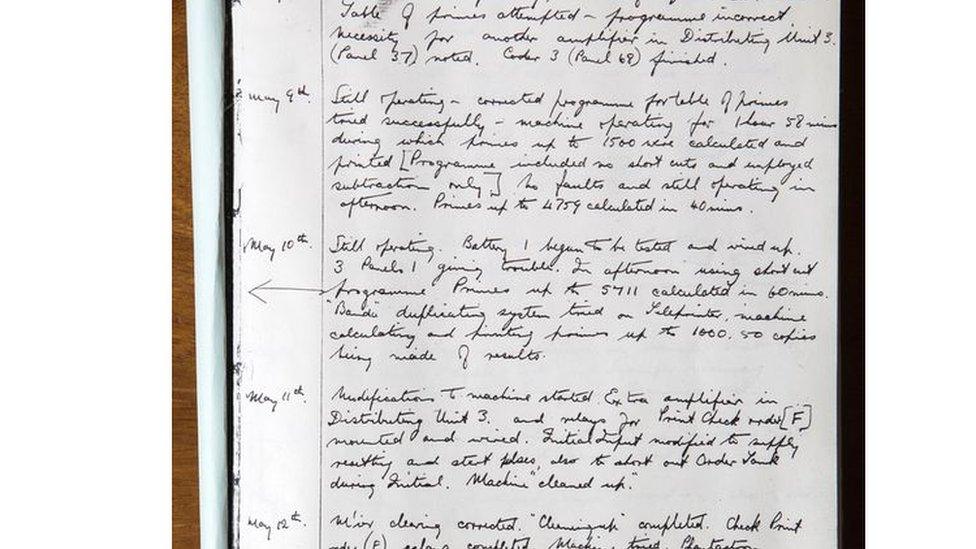 Table of primes attempted – programme incorrect
necessity for another amplifier in Distributing Unit 3.
(Panel 37) noted. Coder 3 (Panel 68) finished.
May 9th. Still operating – corrected programme for table of primes
tried successfully – machine operating for 1 hour 58 mins
during which primes up to 1500 were calculated and
printed [Programme included no short cuts and employed
subtraction only] No faults and still operating in
afternoon. Primes up to 4759 calculated in 40 mins.
May 10th. Still operating. Battery 1 began to be tested and wired up.
3 Panels 1 giving trouble. In afternoon using short cut
programme Primes up to 5711 calculated in 60 mins.
"Banda" duplicating system tried on Teleprinter, machine
calculating and printing primes up to 1000. 50 copies
being made of results.
May 11th. Modifications to machine started. Extra amplifier in
Distributing Unit 3. and relays for Print Check order [F]
mounted and wired. Initial Input modified to supply
resetting and start pulses, also to short out Order Tank
during Initial. Machine "cleaned up."
May 12th. clearing corrected. "Cleaning up" completed. Check Print
order (F) completed. Machine tried.